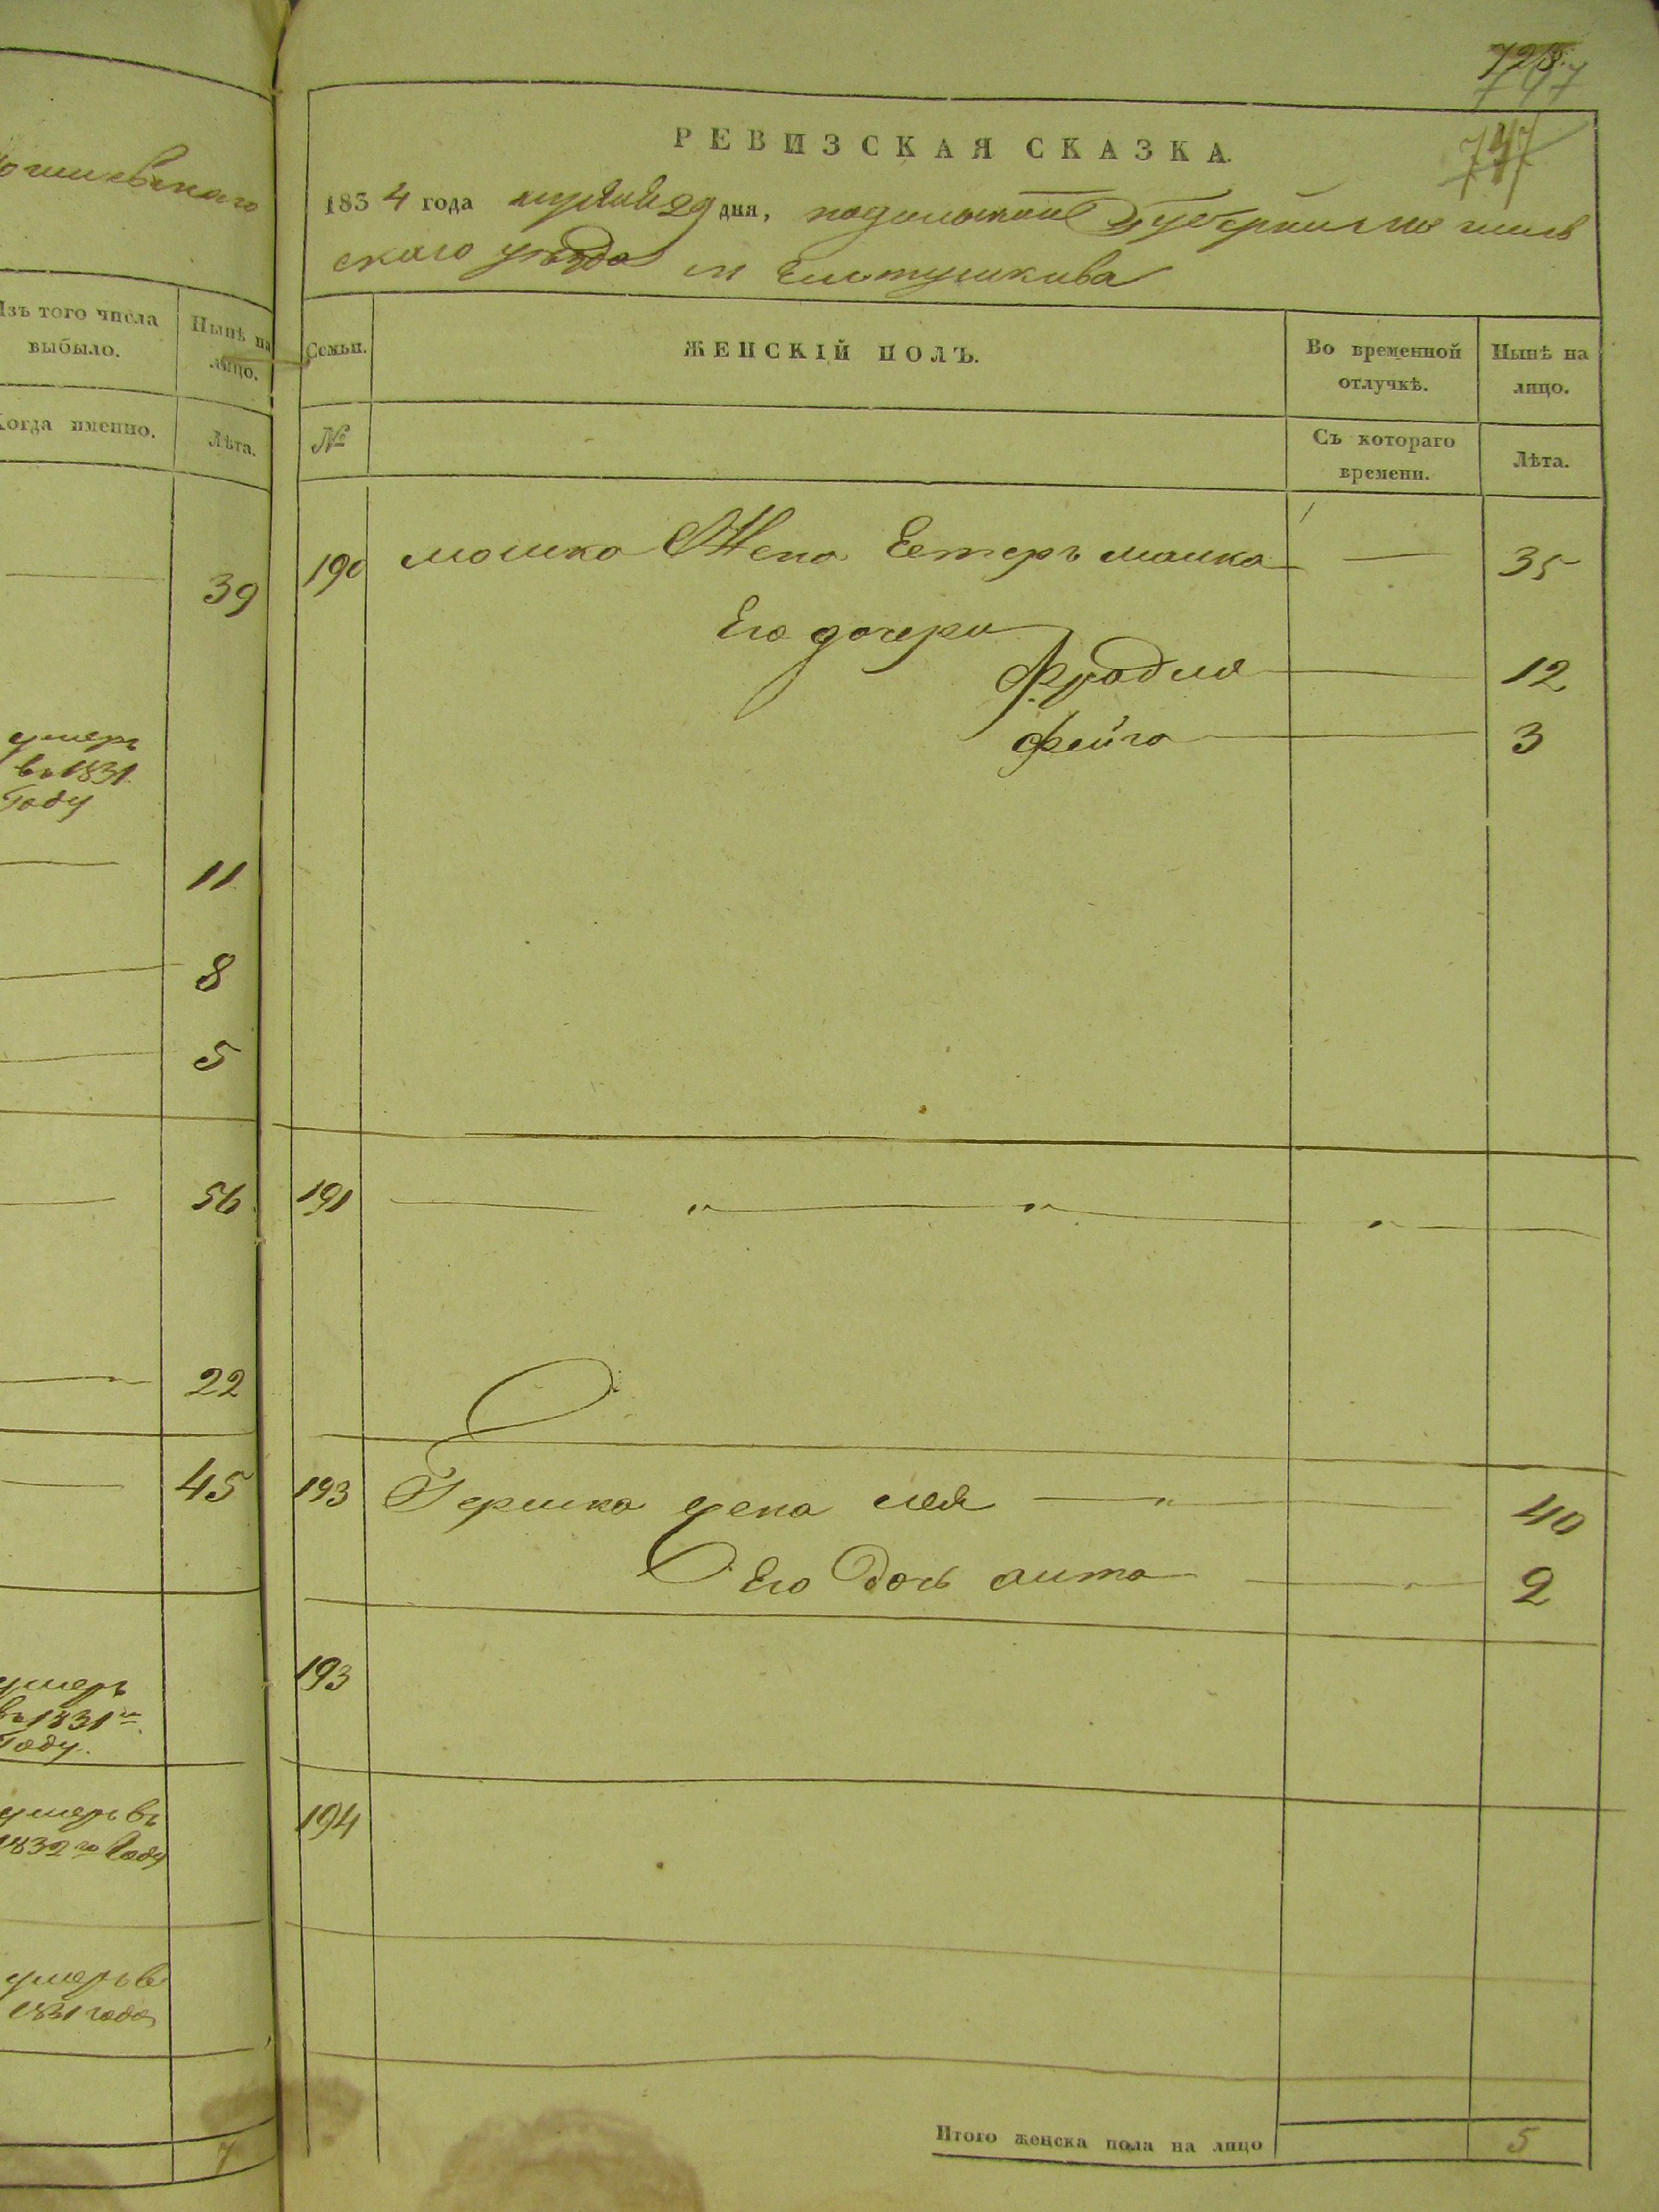 728.
747
747
РЕВИЗСКАЯ СКАЗКА.
1834 года апреля 29 дня, подольской Губернии
скаго уезда м Елтушкива
Изъ того числа выбыло.
Нынѣ на лицо.
Когда именно.
Лѣта.
39
умеръ
въ 1831
Году
11
8
5
56
22
45
умеръ
въ 1831
Году.
умеръ въ
1832 го Году
умеръ в
1831 года
7
Семьи.
ЖЕНСКІЙ ПОЛЪ.
Во временной отлучкѣ.
Нынѣ на лицо.
№
Съ котораго времени.
Лѣта.
190 мошка Жена Естеръ малка — 35
Его дочери
Фрадля — 12
Фейга — 3
191 — „ — „ — „ —
193 Гершка жена лея — „ — 40
Его Дочь аита — 2
193
194
Итого женска пола на лицо 5